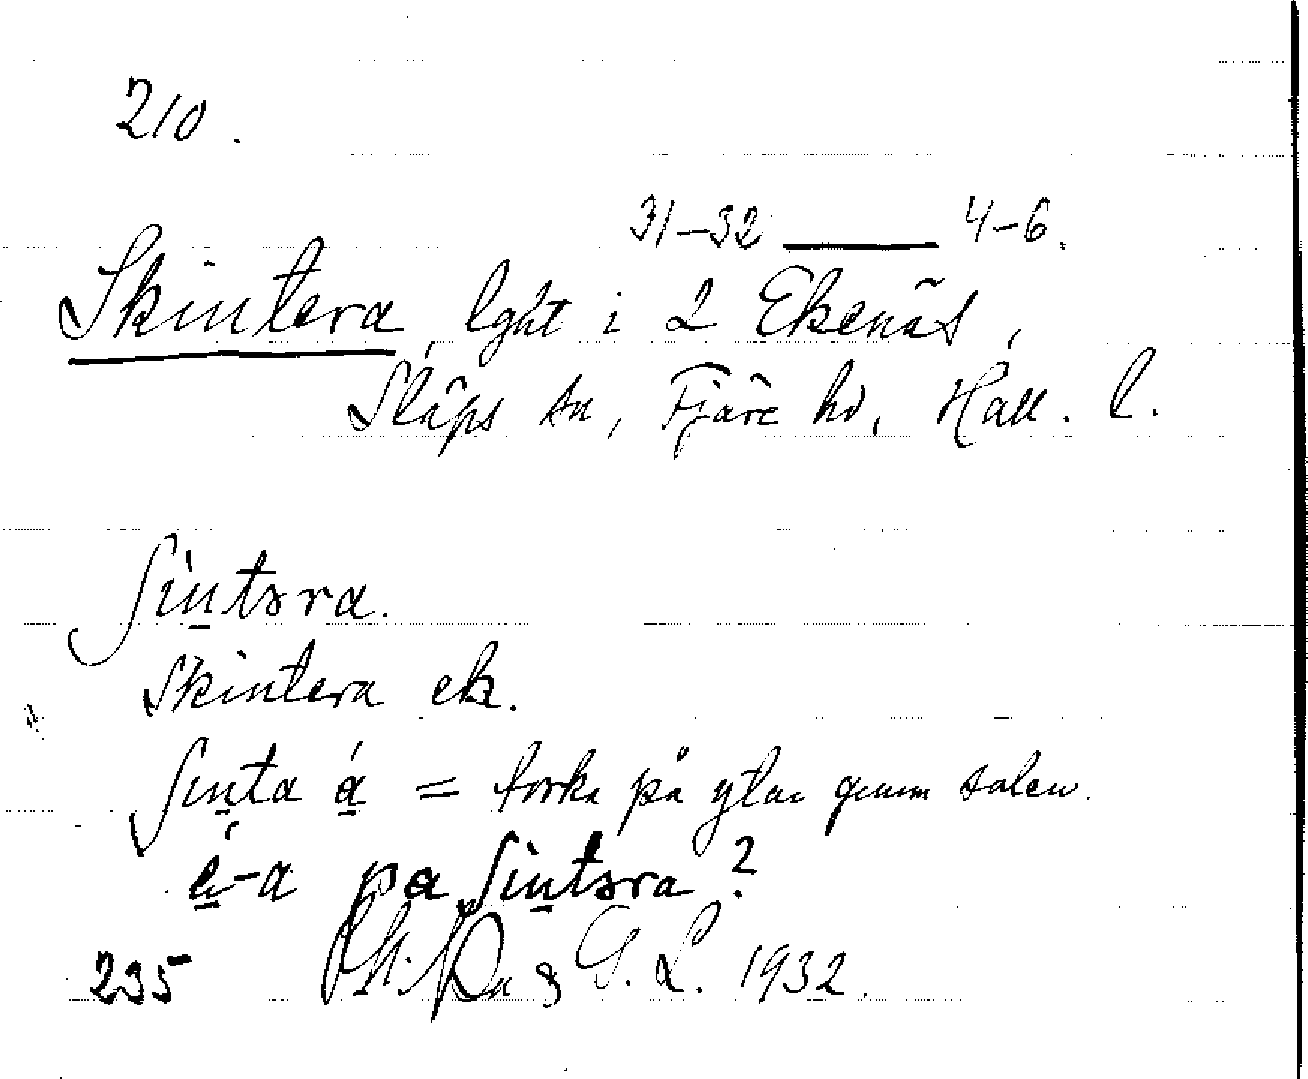 210.
31-32 —— 4-6.
Skintera, lght i 2 Ekenäs,
Släps sn, Fjäre hd, Hall. l.
ʃin̲təra.
Skintera ek.
ʃin̲ta á̲ = torka på ytan genom solen.
pa ʃin̲təra?
235 G. L. 1932.